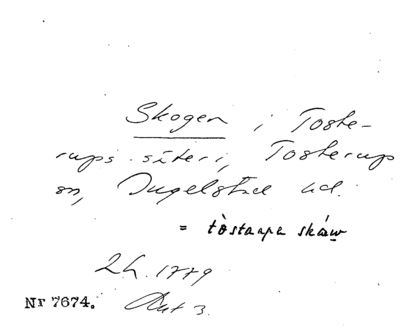 Skogen i Toste-
rups säteri, Tosterups
sn, Ingelstad hd.
= tòstarpa skåw
2h. 1779
Akt 3.
Nr 7674.